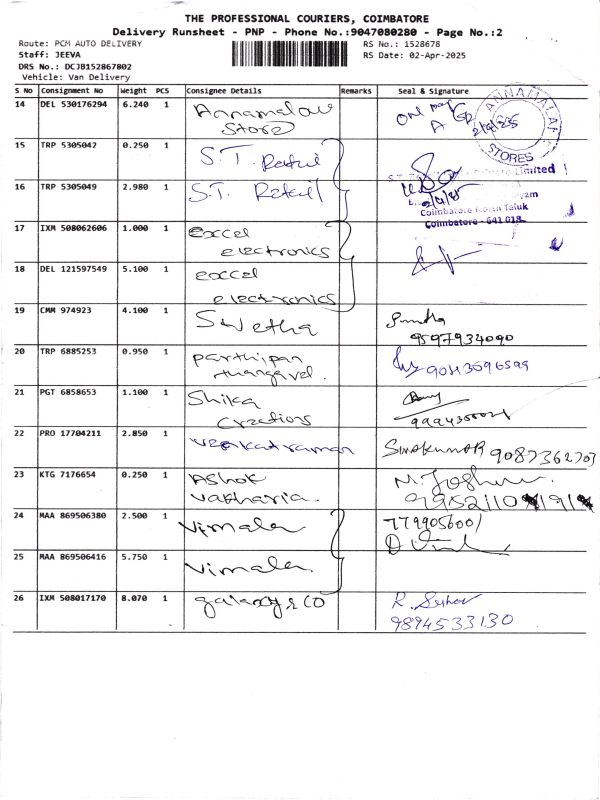 THE PROFESSIONAL COURIERS, COIMBATORE
Delivery Runsheet - PNP - Phone No.:9047080280 - Page No.:2
Route: PCM AUTO DELIVERY
RS No.: 1528678
Staff: JEEVA
RS Date: 02-Apr-2025
DRS No.: DCJB152867802
Vehicle: Van Delivery
S No Consignment No Weight PCS Consignee Details Remarks Seal & Signature
14 DEL 530176294 6.240 1 Annamalai
Store
ANNAMALAI
STORES
15 TRP 5305042 0.250 1 S.T. Retail
Limited
16 TRP 5305049 2.980 1 S.T. Retail
Coimbatore Taluk
Coimbatore - 641 018
17 IXM 508062606 1.000 1 excel
electronics
18 DEL 121597549 5.100 1 excel
electronics
19 CMM 974923 4.100 1 Swetha
9597934090
20 TRP 6885253 0.950 1 parthipan
thangavel.
9043596599
21 PGT 6858653 1.100 1 Shika
Creations
22 PRO 17704211 2.850 1 venkatraman Sivakumar 9087362703
23 KTG 7176654 0.250 1 Ashok
vakharia.
24 MAA 869506380 2.500 1 Vimala 7799056001
25 MAA 869506416 5.750 1 Vimala.
26 IXM 508017170 8.070 1 galaxy & CO R.
9894533130